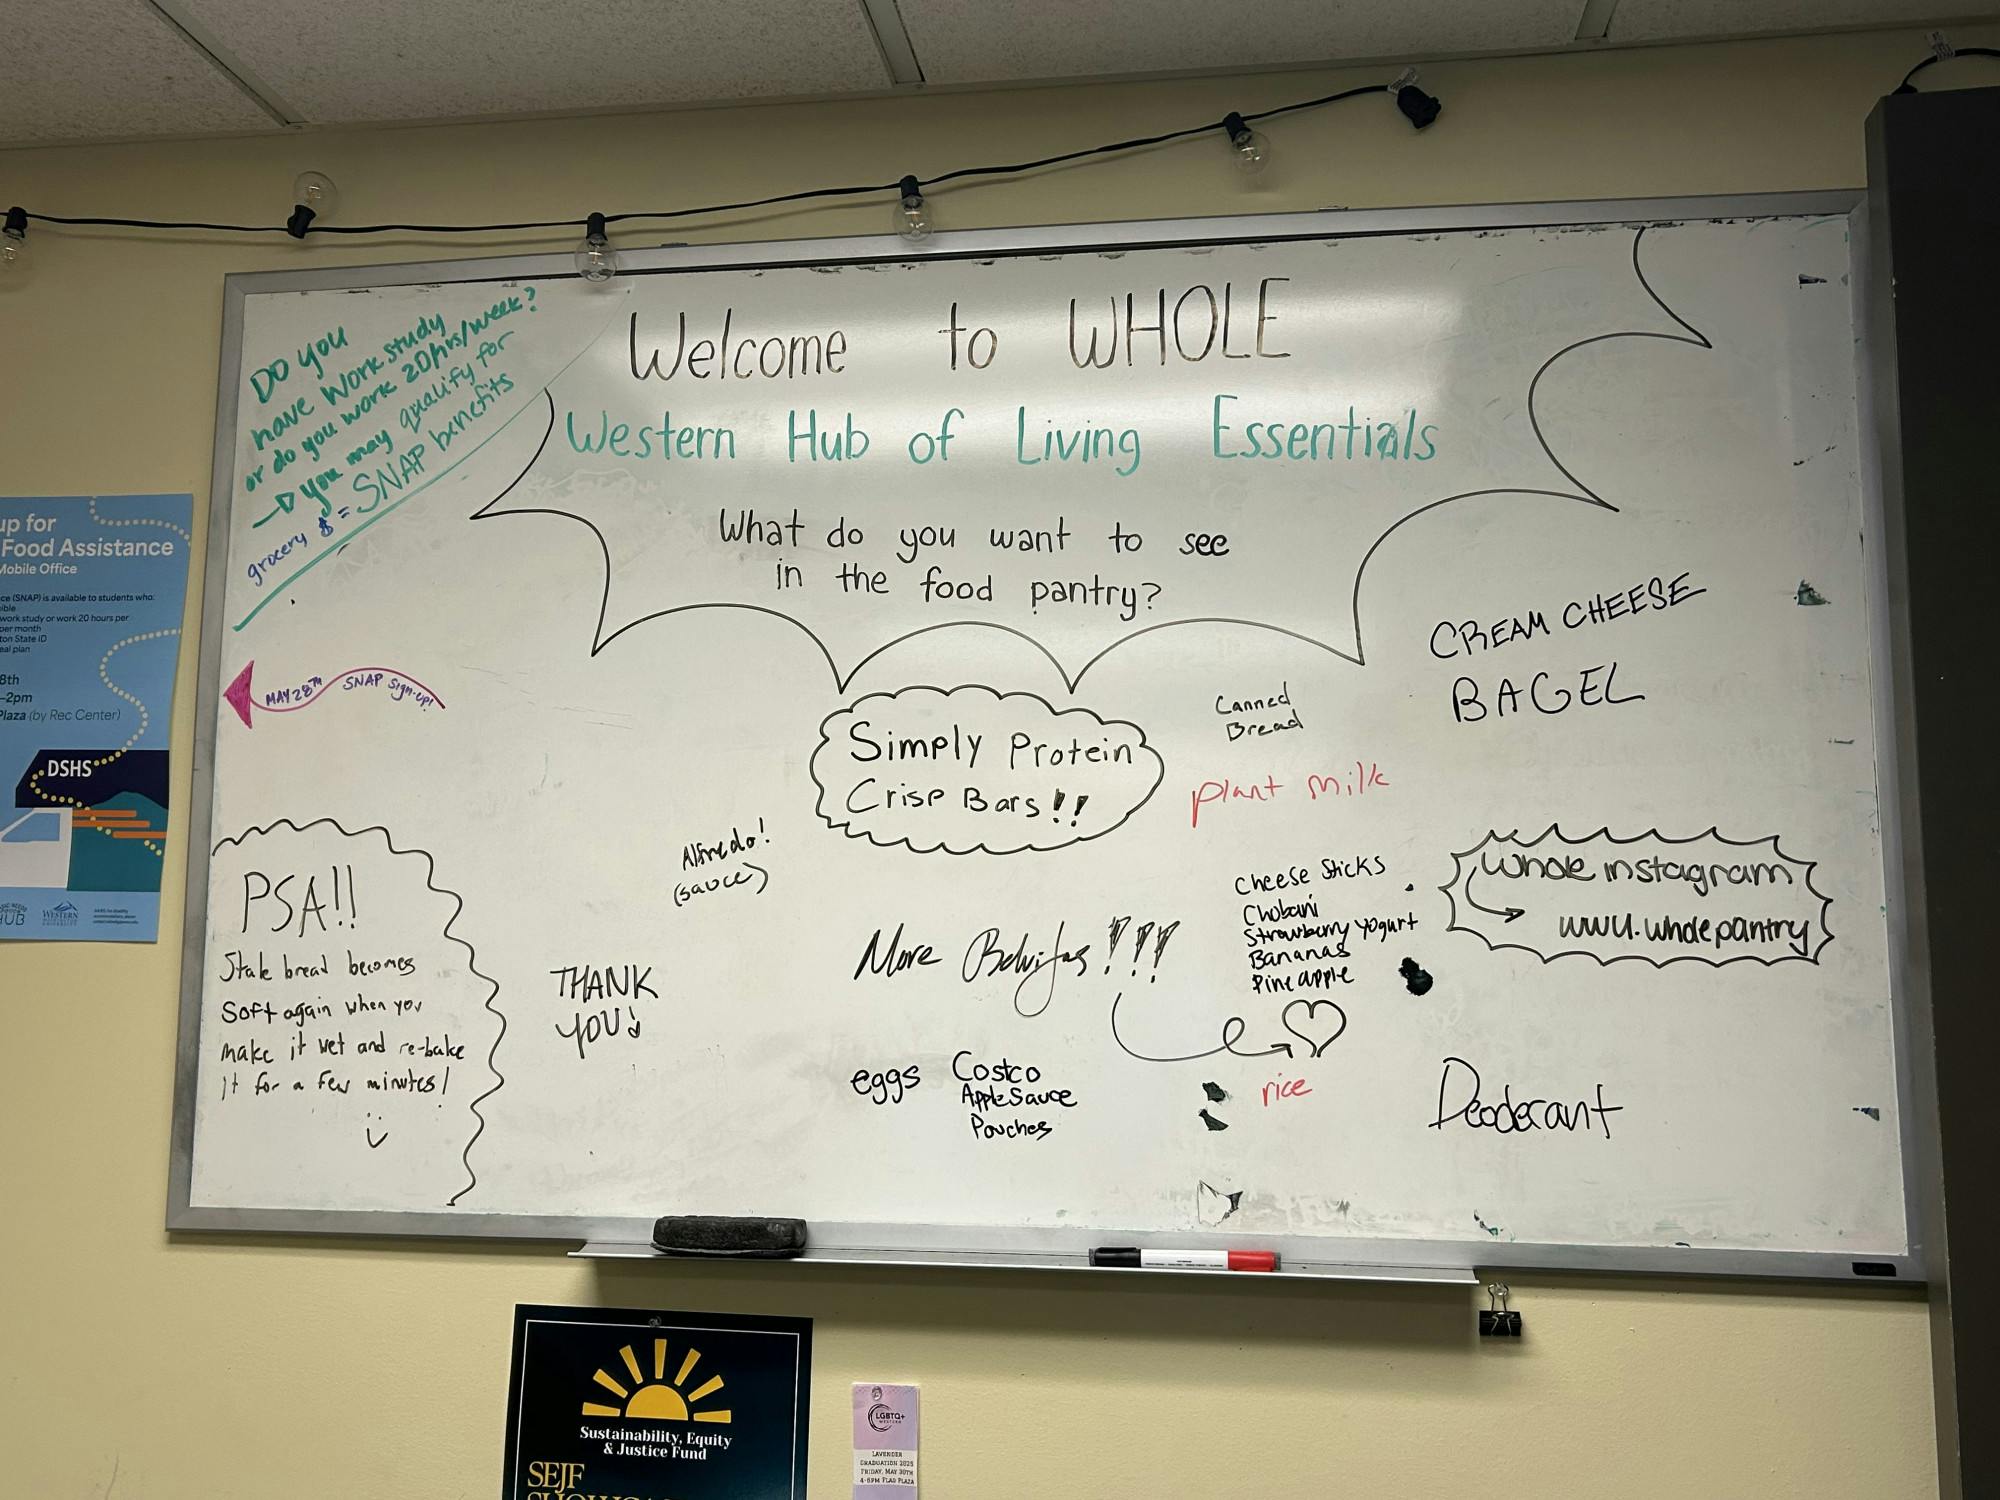 Do you
have Work study
or do you work 20hrs/week?
you may qualify for
grocery $ = SNAP benefits
Welcome to WHOLE
Western Hub of Living Essentials
What do you want to see
in the food pantry?
up for
Food Assistance
Mobile Office
ce (SNAP) is available to students who:
work study or work 20 hours per
per month
ton State ID
eal plan
8th
–2pm
Plaza (by Rec Center)
DSHS
HUB
WESTERN
MAY 28TH SNAP Sign-up!
CREAM CHEESE
BAGEL
Canned
Bread
Simply Protein
Crisp Bars!!
plant milk
Alfredo!
(sauce)
Cheese Sticks
Chobani
Strawberry Yogurt
Bananas
Pineapple
whole instagram
wwu.wholepantry
PSA!!
Stale bread becomes
soft again when you
make it wet and re-bake
it for a few minutes!
THANK
YOU!
More Belvitas!!!
eggs
Costco
AppleSauce
Pouches
rice
Deoderant
Sustainability, Equity
& Justice Fund
SEJF
LGBTQ+
WESTERN
LAVENDER
GRADUATION 2025
FRIDAY, MAY 30TH
4-6PM FLAG PLAZA